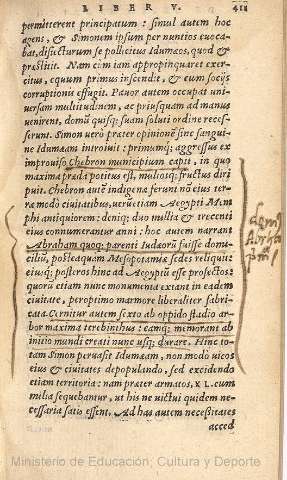 LIBER V. 411
permitterent principatum: simul autem hoc
agens, & Simonem ipsum per nuntios euoca-
bat, disiecturum se pollicitus Idumæos, quod &
præstitit. Nam cum iam appropinquaret exer-
citus, equum primus inscendit, & cum socijs
corruptionis effugit. Pauor autem occupat uni-
uersam multitudinem, ac priusquam ad manus
uenirent, domū quisq; suam soluti ordine reces-
serunt. Simon uerò præter opinionē sine sangui-
ne Idumæam introiuit: primumq; aggressus ex
improuiso Chebron municipium capit, in quo
maxima præda potitus est, multosq; fructus diri
puit. Chebron autē indigenæ ferunt nō eius ter-
ræ modò ciuitatibus, uerùetiam Aegyptī Mem
phi antiquiorem: deniq; duo millia & trecenti
eius connumerantur anni: hoc autem narrant
Abraham quoq; parenti Iudæorū fuisse domi-
cilium, posteaquam Mesopotamiæ sedes reliquit:
eiusq; posteros hinc ad Aegyptū esse profectos:
quorū etiam nunc monumenta extant in eadem
ciuitate, peroptimo marmore liberaliter fabri-
cata. Cernitur autem sexto ab oppido stadio ar-
bor maxima terebinthus: eamq; memorant ab
initio mundi creati nunc usq; durare. Hinc to-
tam Simon peruasit Idumæam, non modò uicos
eius & ciuitates depopulando, sed excidendo
etiam territoria: nam præter armatos, XL. eum
millia sequebantur, ut his ne uictui quidem ne-
cessaria satis essent. Ad has autem necessitates
acced
Ministerio de Educación, Cultura y Deporte